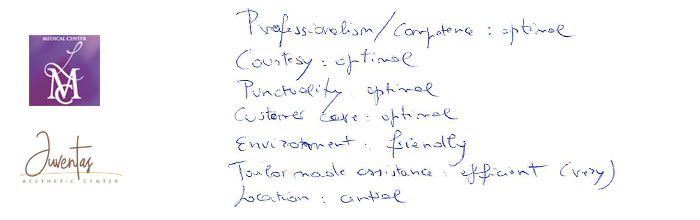 MEDICAL CENTER
LMC
Juventas
AESTHETIC CENTER
Professionalism/Competence : optimal
Courtesy : optimal
Punctuality : optimal
Customer care : optimal
Environment : friendly
Tailor made assistance : efficient (very)
Location : central